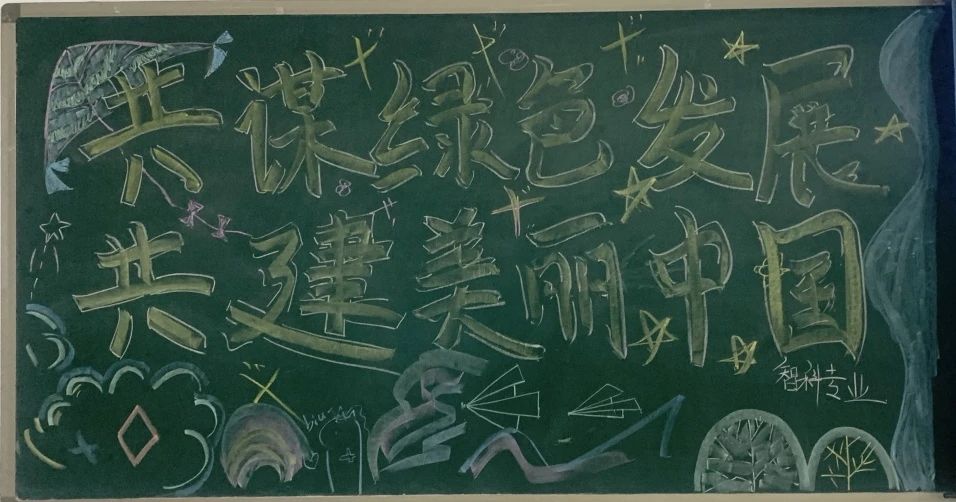 共谋绿色发展
共建美丽中国
智科专业
biu